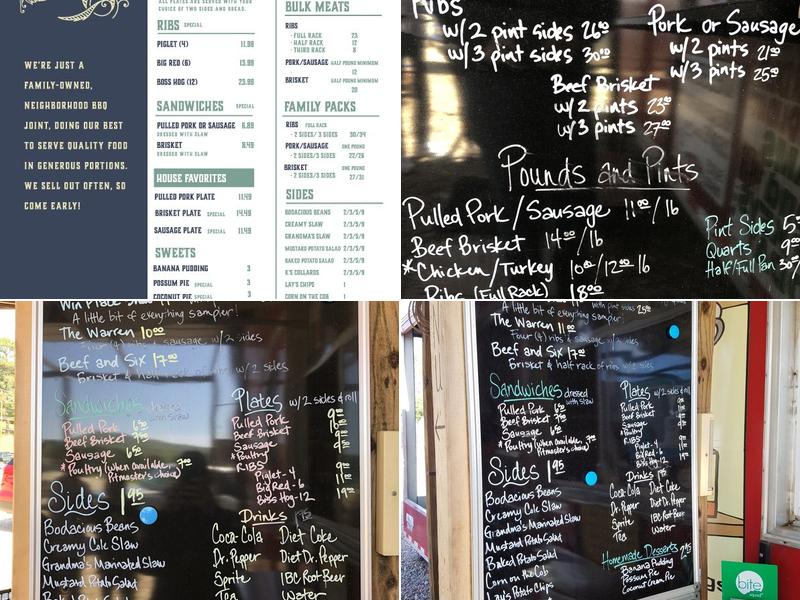 WE'RE JUST A
FAMILY-OWNED,
NEIGHBORHOOD BBQ
JOINT, DOING OUR BEST
TO SERVE QUALITY FOOD
IN GENEROUS PORTIONS.
WE SELL OUT OFTEN, SO
COME EARLY!
ALL PLATES ARE SERVED WITH YOUR
CHOICE OF TWO SIDES AND BREAD.
RIBS SPECIAL
PIGLET (4) 11.99
BIG RED (6) 13.99
BOSS HOG (12) 23.99
SANDWICHES SPECIAL
PULLED PORK OR SAUSAGE 6.89
DRESSED WITH SLAW
BRISKET 8.49
DRESSED WITH SLAW
HOUSE FAVORITES
PULLED PORK PLATE 11.49
BRISKET PLATE SPECIAL 14.49
SAUSAGE PLATE SPECIAL 11.49
SWEETS
BANANA PUDDING 3
POSSUM PIE SPECIAL 3
COCONUT PIE SPECIAL 3
BULK MEATS
RIBS
- FULL RACK 23
- HALF RACK 12
- THIRD RACK 8
PORK/SAUSAGE HALF POUND MINIMUM
12
BRISKET HALF POUND MINIMUM
20
FAMILY PACKS
RIBS FULL RACK
- 2 SIDES/3 SIDES 30/34
PORK/SAUSAGE ONE POUND
- 2 SIDES/3 SIDES 22/26
BRISKET ONE POUND
- 2 SIDES/3 SIDES 27/31
SIDES
BODACIOUS BEANS 2/3/5/9
CREAMY SLAW 2/3/5/9
GRANDMA'S SLAW 2/3/5/9
MUSTARD POTATO SALAD 2/3/5/9
BAKED POTATO SALAD 2/3/5/9
K'S COLLARDS 2/3/5/9
LAY'S CHIPS 1
CORN ON THE COB
Ribs
w/2 pint sides 26⁰⁰
w/3 pint sides 30⁰⁰
Pork or Sausage
w/2 pints 21⁰⁰
w/3 pints 25⁰⁰
Beef Brisket
w/2 pints 23⁰⁰
w/3 pints 27⁰⁰
Pounds and Pints
Pulled Pork/Sausage 11⁰⁰/lb
Beef Brisket 14⁰⁰/lb
*Chicken/Turkey 10⁰⁰/12⁰⁰ lb
Ribs (Full Rack) 18⁰⁰
Pint Sides 5
Quarts 9
Half/Full Pan 30/
Win Place
A little bit of everything sampler!
The Warren 10⁰⁰
Four (4) ribs & sausage w/2 sides
Beef and Six 17⁰⁰
Brisket & half rack of ribs w/2 sides
Sandwiches dressed with slaw
Pulled Pork 6
Beef Brisket
Sausage 6
*Poultry (when available, 7⁰⁰
Pitmaster's choice)
Sides 1⁹⁵
Bodacious Beans
Creamy Cole Slaw
Grandma's Marinated Slaw
Mustard Potato Salad
Baked Potato Salad
Plates w/2 sides & roll
Pulled Pork 9
Beef Brisket
Sausage 9
*Poultry
RIBS
Piglet-4
Big Red-6
Boss Hog-12
Drinks
Coca-Cola Diet Coke
Dr. Pepper Diet Dr. Pepper
Sprite IBC Root Beer
Tea Water
A little bit of everything sampler!
with pint sides 25
The Warren 11⁰⁰
Four (4) ribs & sausage w/2 sides
Beef and Six 17⁰⁰
Brisket & half rack of ribs w/2 sides
Sandwiches dressed with slaw
Pulled Pork 6
Beef Brisket
Sausage 6
*Poultry (when available, 7⁰⁰
Pitmaster's choice)
Sides 1⁹⁵
Bodacious Beans
Creamy Cole Slaw
Grandma's Marinated Slaw
Mustard Potato Salad
Baked Potato Salad
Corn on the Cob
Lay's Potato Chips
Plates w/2 sides & roll
Pulled Pork
Beef Brisket
Sausage
*Poultry
RIBS
Piglet-4
Big Red-6
Boss Hog-12
Drinks
Coca-Cola Diet Coke
Dr. Pepper Diet Dr. Pepper
Sprite IBC Root Beer
Tea Water
Homemade Desserts
Banana Pudding
Possum Pie
Coconut Cream Pie
bite